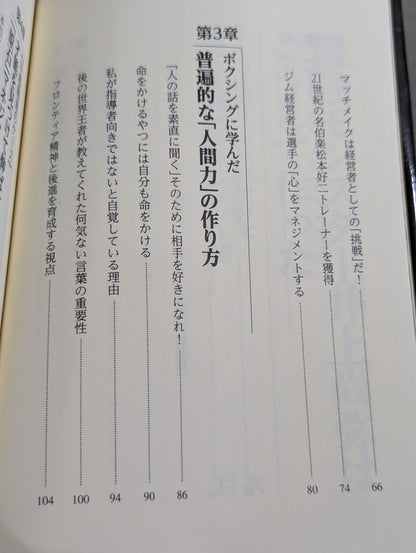 マッチメイクは経営者としての「挑戦」だ！ 66
21世紀の名伯楽松本好二トレーナーを獲得 74
ジム経営者は選手の「心」をマネジメントする 80
第3章
ボクシングに学んだ
普遍的な「人間力」の作り方
「人の話を素直に聞く」そのために相手を好きになれ！ 86
命をかけるやつには自分も命をかける 90
私が指導者向きではないと自覚している理由 94
後の世界王者が教えてくれた何気ない言葉の重要性 100
フロンティア精神と後進を育成する視点 104